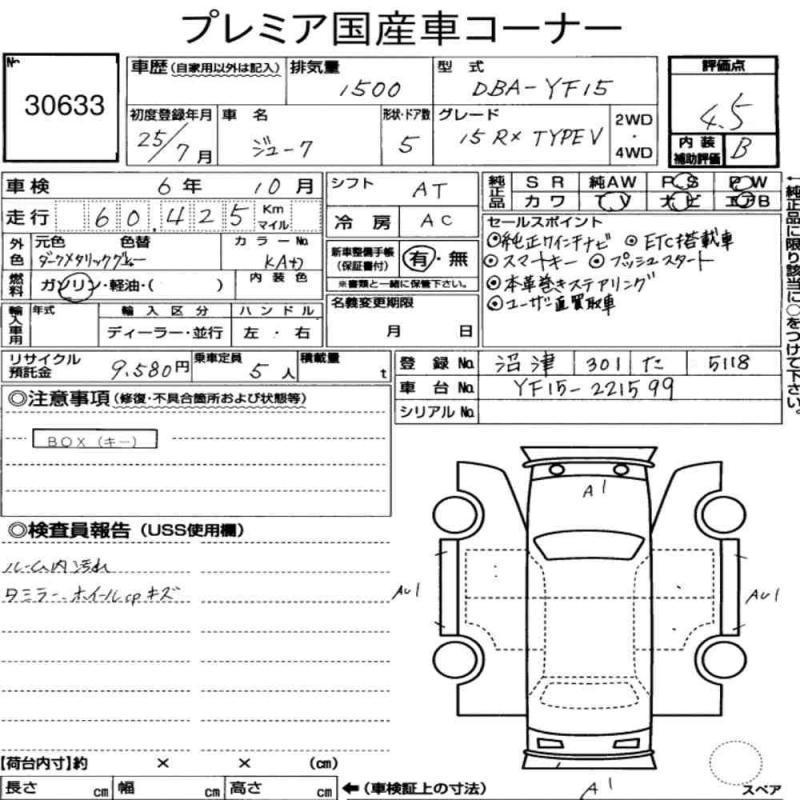 プレミア国産車コーナー
No. 30633
車歴 (自家用以外は記入)
排気量 1500
型式 DBA-YF15
評価点 4.5
初度登録年月 25/7月
車名 ジューク
形状・ドア数 5
グレード 15RX TYPE V
2WD・4WD
内装補助評価 B
車検 6年 10月
シフト AT
純正品 SR 純AW PS PW
カワ TV ナビ エアB
走行 60,425 Km マイル
冷房 AC
セールスポイント
外色 元色 色替 カラーNo.
ダークメタリックグレー KAD
新車整備手帳 (保証書付) 有・無
※書類と一緒に保管下さい。
◎純正7インチナビ ◎ETC搭載車
◎スマートキー ◎プッシュスタート
◎本革巻きステアリング
◎ユーザー直買取車
燃料 ガソリン・軽油・( ) 内装色
名義変更期限 月 日
輸入車用 年式 輸入区分 ハンドル
ディーラー・並行 左・右
←純正品に限り該当に○をつけて下さい。
リサイクル預託金 9,580円
乗車定員 5人
積載量 t
登録No. 沼津 301 た 5118
車台No. YF15-221599
シリアルNo.
◎注意事項 (修復・不具合箇所および状態等)
BOX (キー)
◎検査員報告 (USS使用欄)
ルーム内汚れ
タミラー、ホイールcpキズ
A1
AU1
AU1
A1
【荷台内寸】約 × × (cm)
長さ cm 幅 cm 高さ cm
←(車検証上の寸法)
スペア